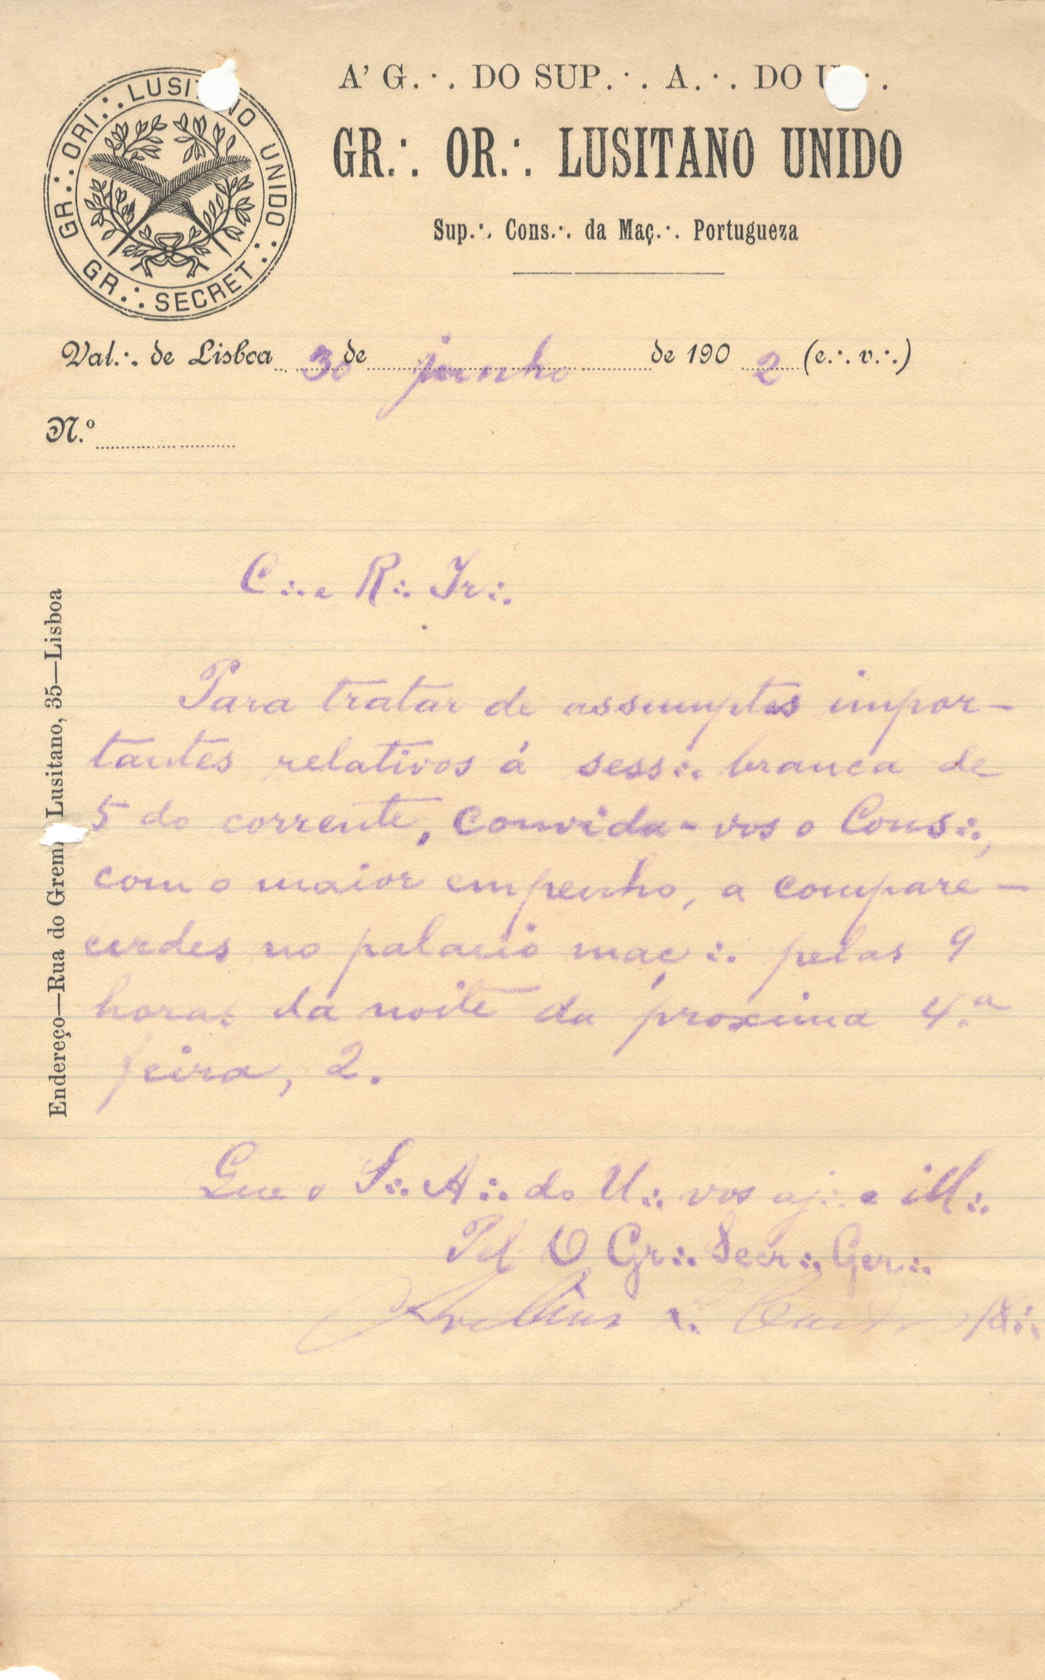 GR.∴ ORI.∴ LUSITANO UNIDO.∴
GR.∴ SECRET.∴
A' G.∴ DO SUP.∴ A.∴ DO U.∴
GR.∴ OR.∴ LUSITANO UNIDO
Sup.∴ Cons.∴ da Maç.∴ Portugueza
Val.∴ de Lisboa 30 de junho de 1902 (e.∴ v.∴)
N.º
C∴ e R∴ Ir∴
Para tratar de assumptos impor-
tantes relativos á sess∴ branca de
5 do corrente, convida-vos o Cons∴,
com o maior empenho, a compare-
cerdes no palacio maç∴ pelas 9
horas da noite da proxima 4.ª
feira, 2.
Que o S∴ A∴ do U∴ vos aj∴ e ill∴
Pel O Gr∴ Secr∴ Ger∴
Endereço—Rua do Grem Lusitano, 35—Lisboa